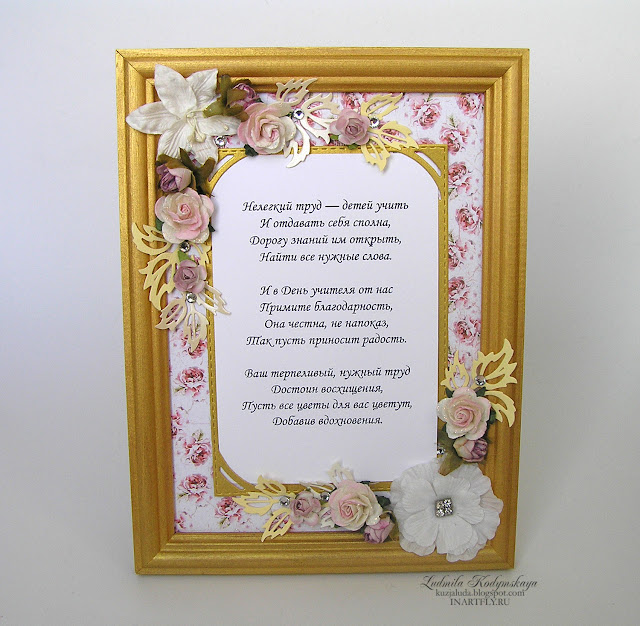 Нелегкий труд — детей учить
И отдавать себя сполна,
Дорогу знаний им открыть,
Найти все нужные слова.
И в День учителя от нас
Примите благодарность,
Она честна, не напоказ,
Так пусть приносит радость.
Ваш терпеливый, нужный труд
Достоин восхищения,
Пусть все цветы для вас цветут,
Добавив вдохновения.
Ludmila Kodymskaya
kuzjaluda.blogspot.com
INARTFLY.RU